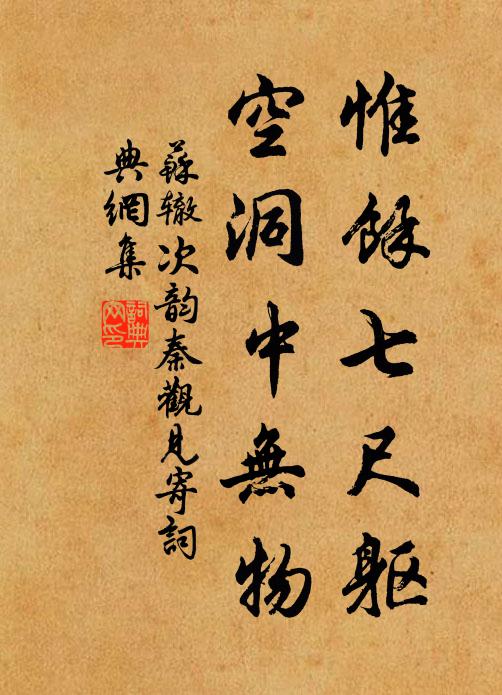 惟餘七尺軀
空洞中無物
蘇辙次韵秦觀見寄詞
典網集
詞典网印